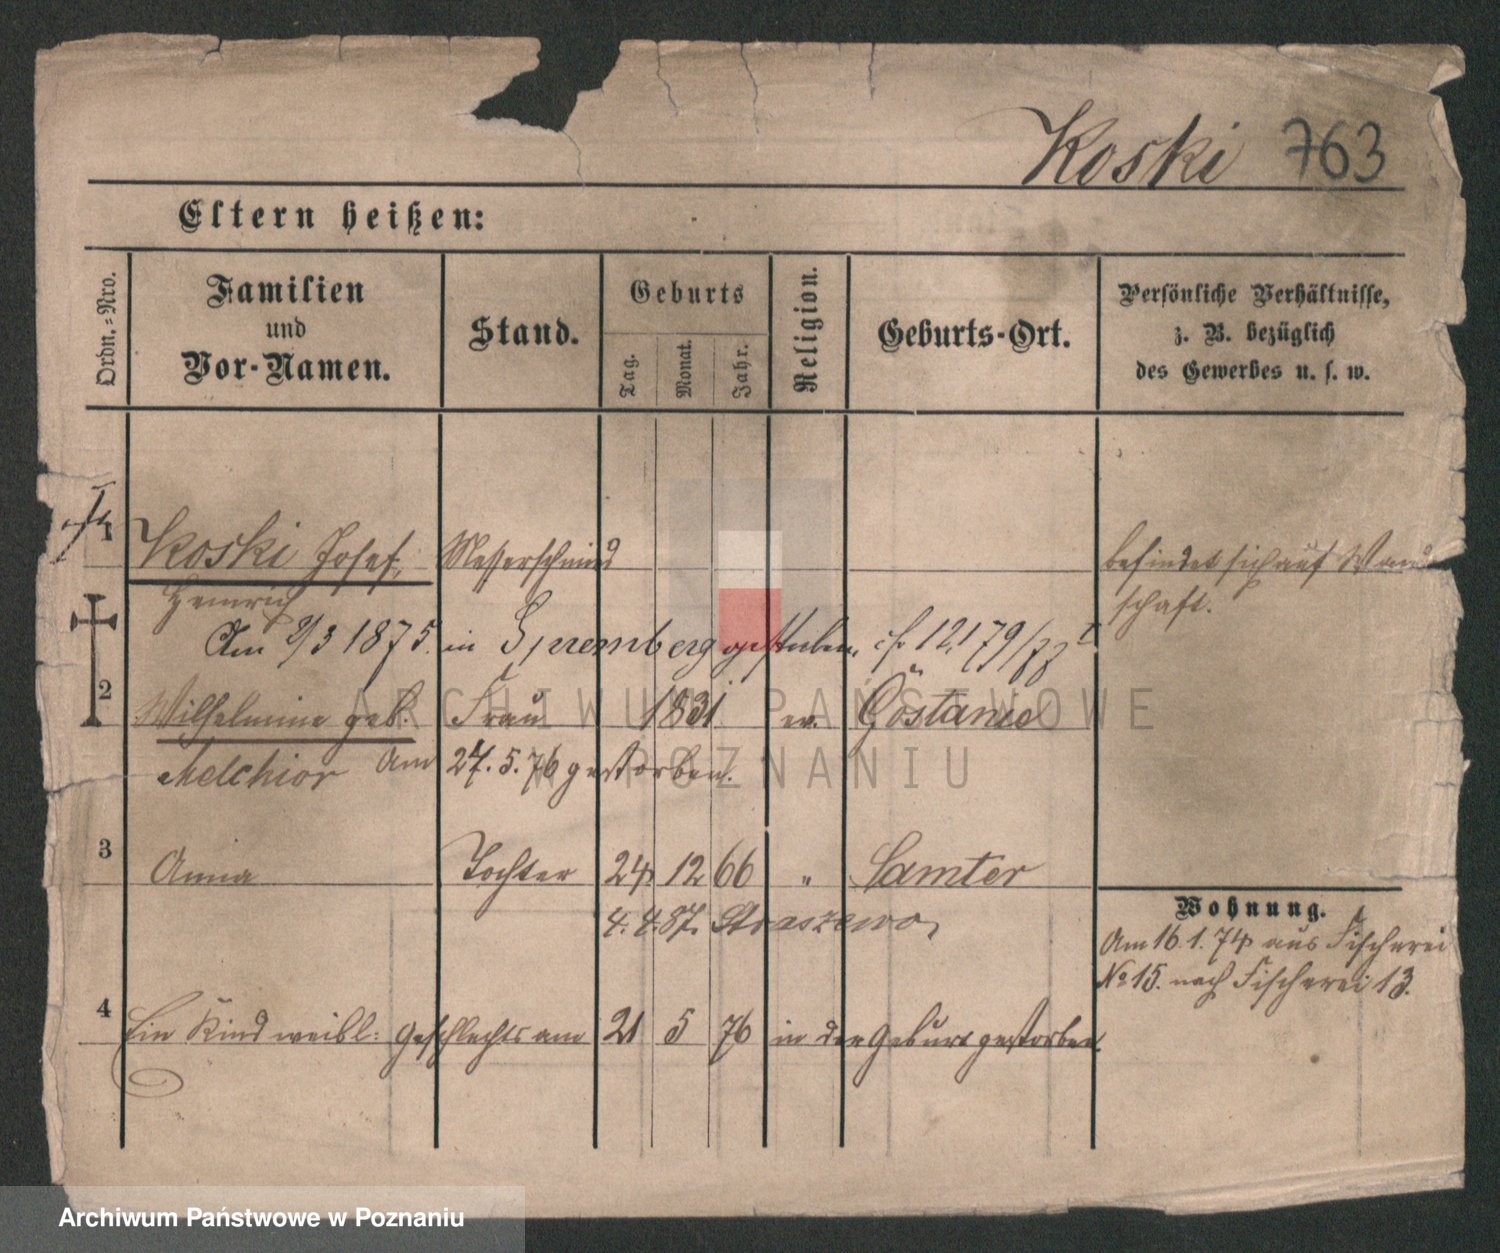 Koski 763
Eltern heißen:
Ordn.=Nro.
Familien
und
Vor-Namen.
Stand.
Geburts
Tag.
Monat.
Jahr.
Religion.
Geburts-Ort.
Persönliche Verhältnisse,
z. B. bezüglich
des Gewerbes u. s. w.
1 Koski Josef, Messerschmied befindet sich auf Wand
Heinrich schaft.
Am 2/3 1875. in Spremberg gestorben.
2 Wilhelmine geb. Frau 1831 ev. Göstanie
Melchior Am 27. 5. 76 gestorben.
3 Anna Tochter 24 12 66 " Samter
4. 4. 87. Straszewo,
Wohnung.
Am 16. 1. 74 aus Fischerei
No 15. nach Fischerei 13.
4 Ein Kind weibl: Geschlechts am 21 5 76 in der Geburt gestorben.
ARCHIWUM PAŃSTWOWE
W POZNANIU
Archiwum Państwowe w Poznaniu